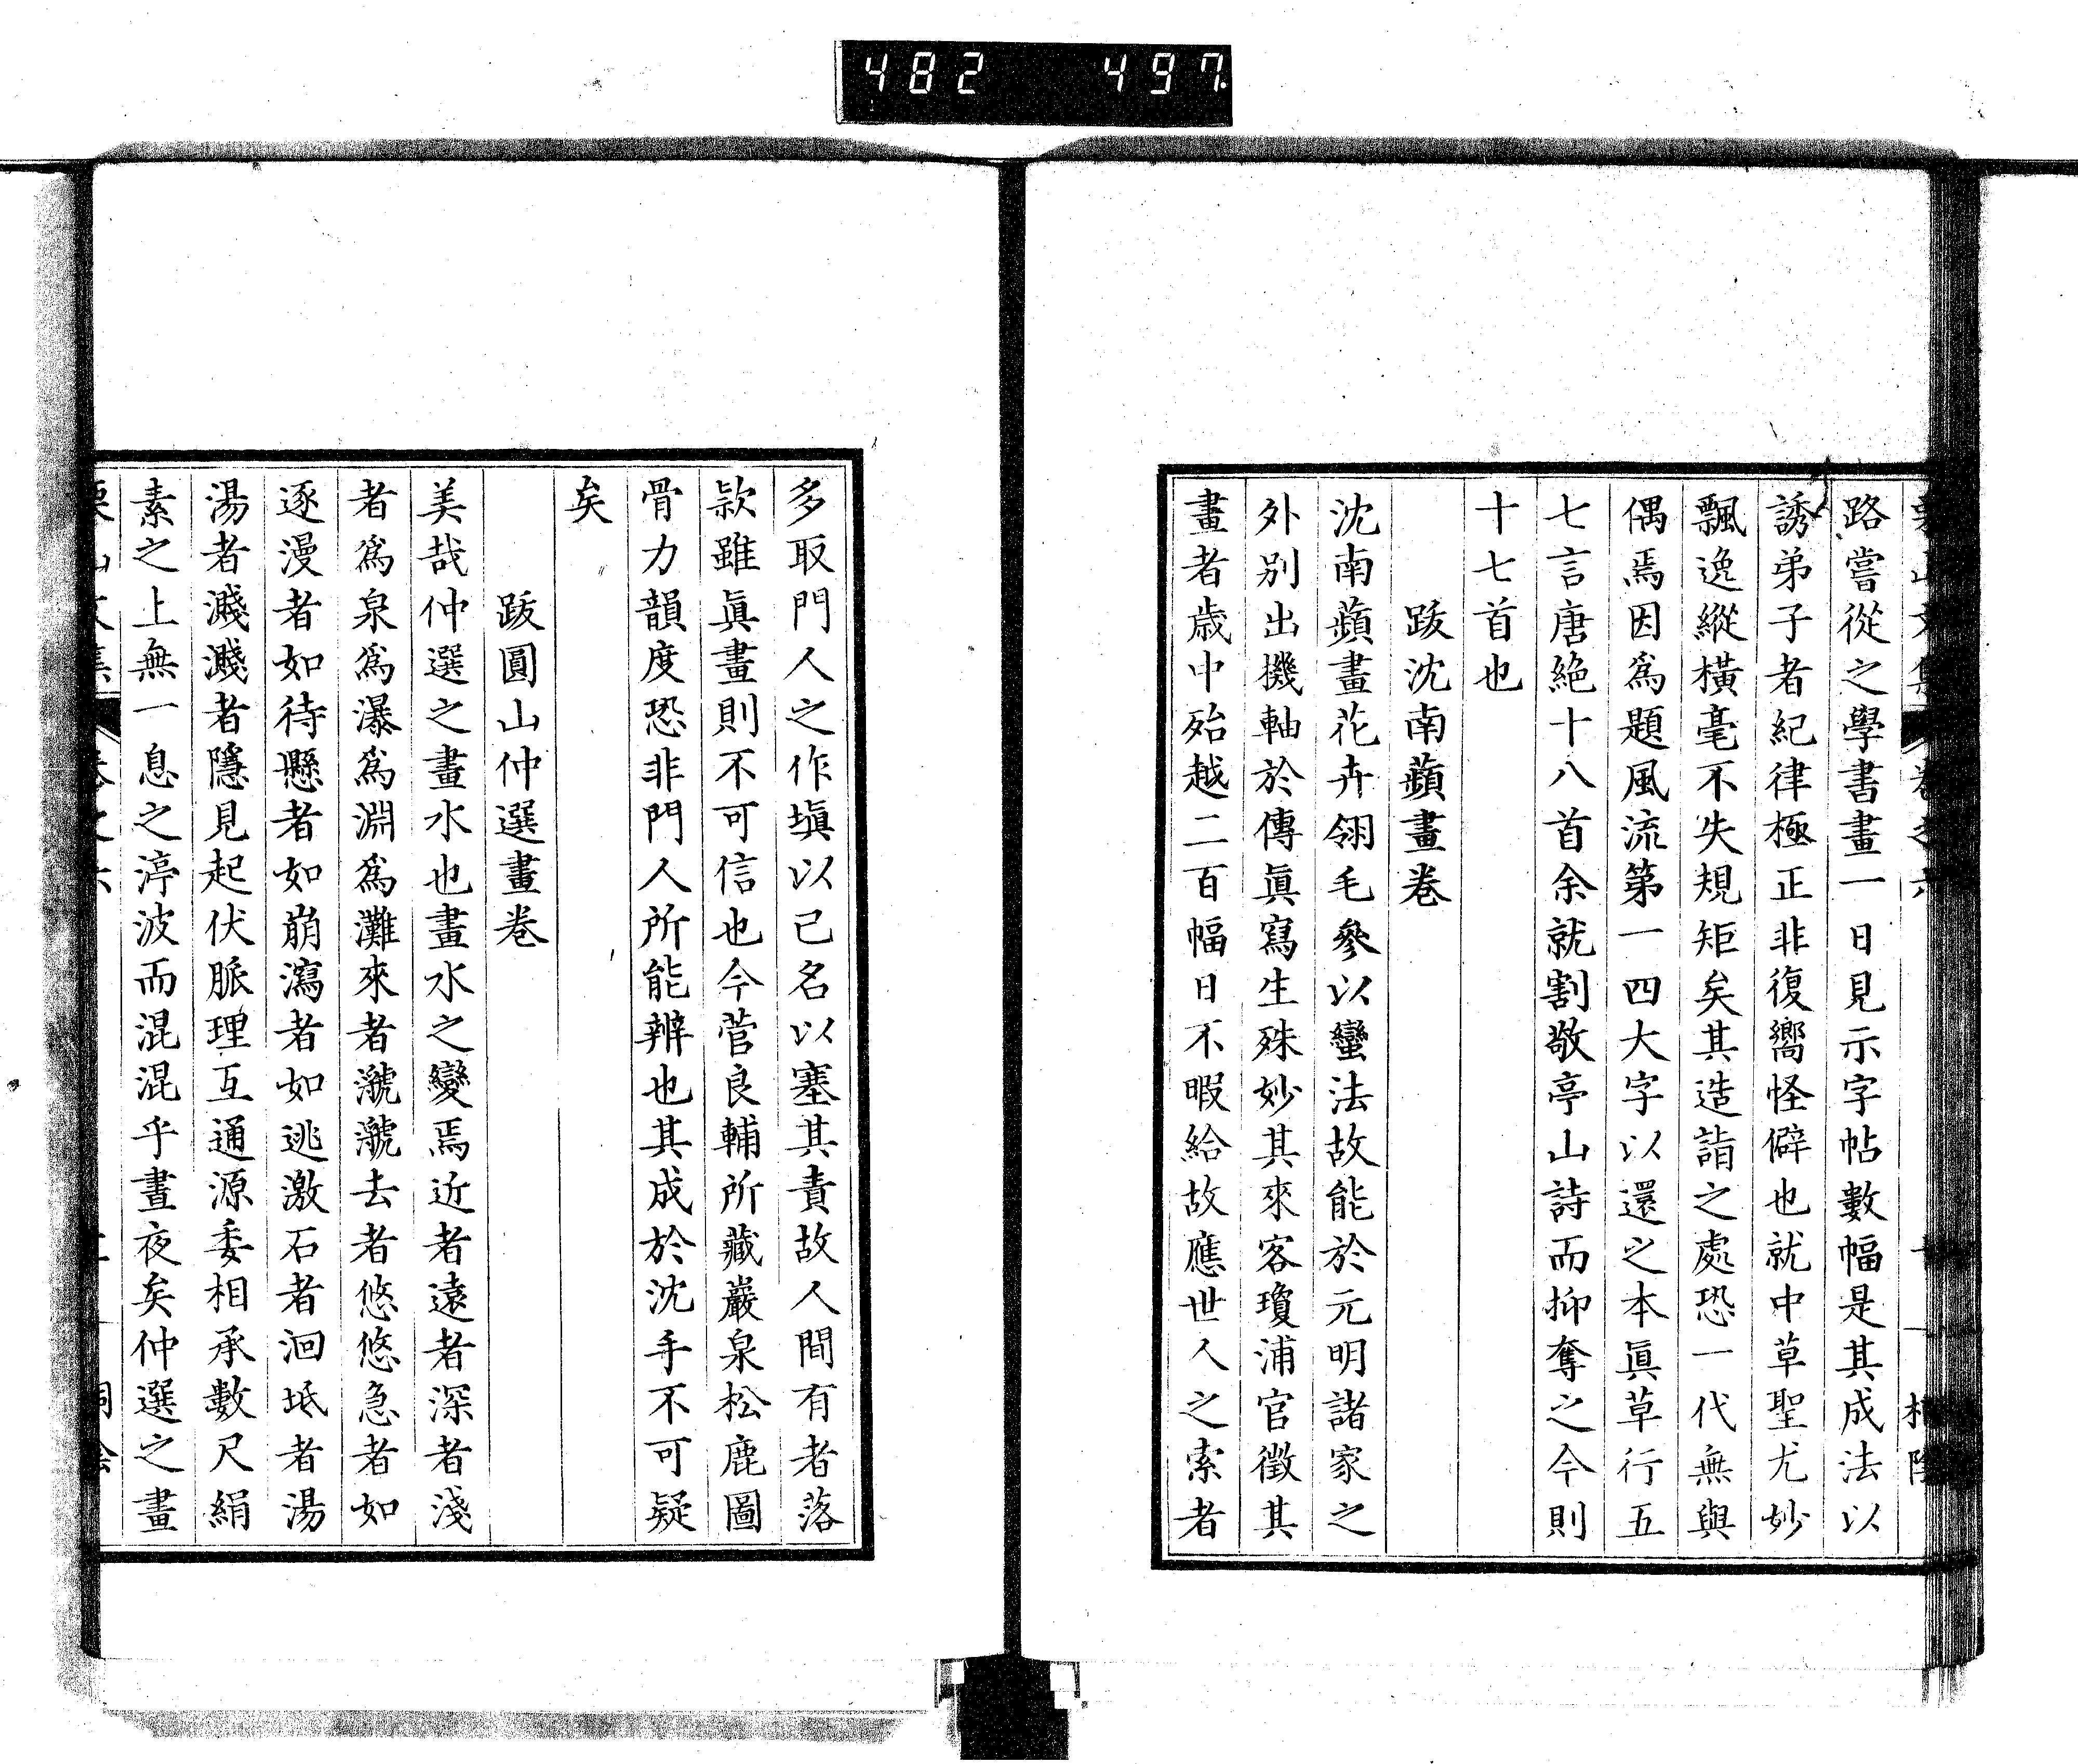 482 497.
路嘗從之學書畫一日見示字帖數幅是其成法以
誘弟子者紀律極正非復嚮怪僻也就中草聖尤妙
飄逸縱橫毫不失規矩矣其造詣之處恐一代無與
偶焉因爲題風流第一四大字以還之本眞草行五
七言唐絶十八首余就割敬亭山詩而抑奪之今則
十七首也
跋沈南蘋畫卷
沈南蘋畫花卉翎毛參以蠻法故能於元明諸家之
外別出機軸於傳眞寫生殊妙其來客瓊浦官徵其
畫者歲中殆越二百幅日不暇給故應世人之索者
多取門人之作塡以己名以塞其責故人間有者落
款雖眞畫則不可信也今菅良輔所藏巖泉松鹿圖
骨力韻度恐非門人所能辨也其成於沈手不可疑
矣
跋圓山仲選畫卷
美哉仲選之畫水也畫水之變焉近者遠者深者淺
者爲泉爲瀑爲淵爲灘來者瀧瀧去者悠悠急者如
逐漫者如待懸者如崩瀉者如逃激石者洄坻者湯
湯者濺濺者隱見起伏脈理互通源委相承數尺絹
素之上無一息之渟波而混混乎晝夜矣仲選之畫
栗山文集 卷之六